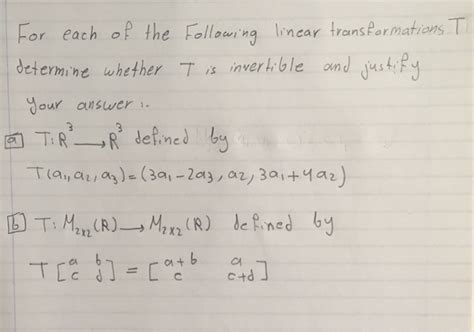 For each of the Following linear transformations T
determine whether T is invertible and justify
your answer :-
a T: R³ → R³ defined by
T(a₁, a₂, a₃) = (3a₁ - 2a₃, a₂, 3a₁ + 4a₂)
b T: M₂ₓ₂(R) → M₂ₓ₂(R) defined by
T [a b
c d] = [a+b a
c c+d]